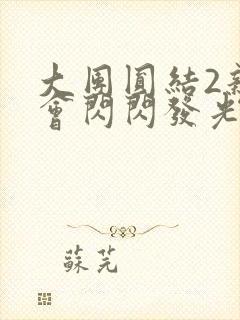 大團圓結2親
會閃閃發光
蘇芫